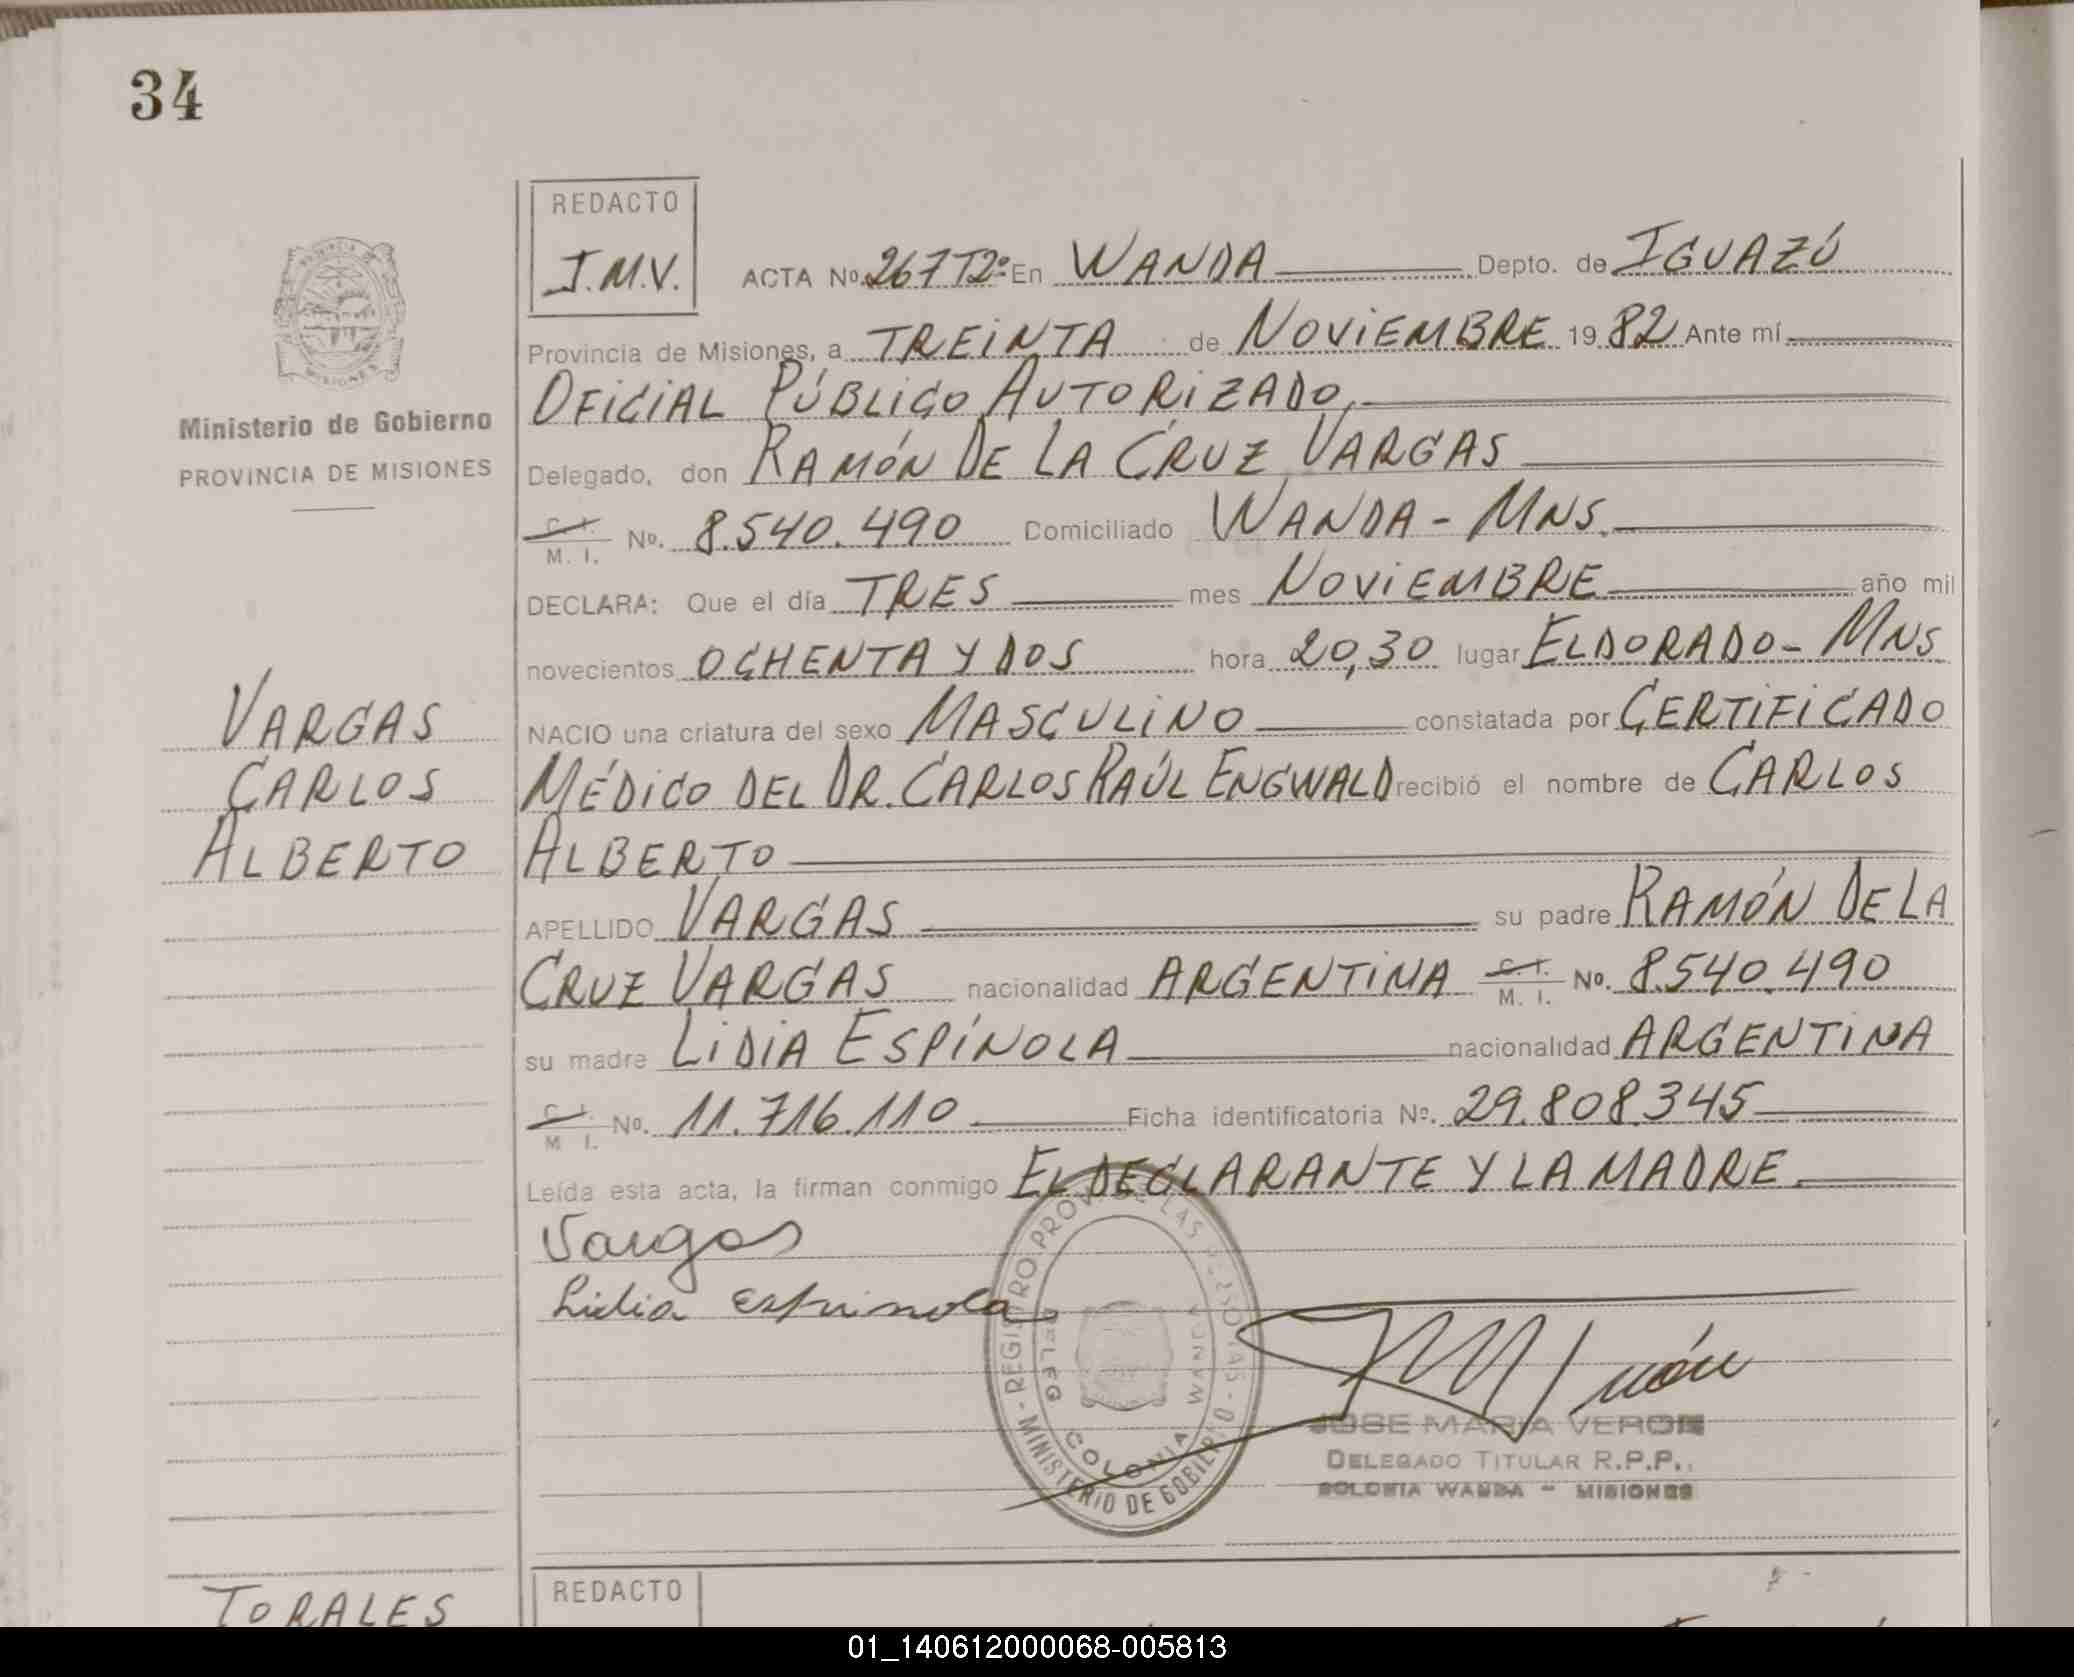 34
REDACTO
J.M.V.
ACTA No. 267 T2º En WANDA Depto. de IGUAZÚ
Provincia de Misiones, a TREINTA de NOVIEMBRE 1982 Ante mí
OFICIAL PÚBLICO AUTORIZADO,
Delegado, don RAMÓN DE LA CRUZ VARGAS
C. I.
M. I. No. 8.540.490 Domiciliado WANDA - MNS.
DECLARA: Que el día TRES mes NOVIEMBRE año mil
novecientos OCHENTA Y DOS hora 20,30 lugar ELDORADO - MNS
NACIO una criatura del sexo MASCULINO constatada por CERTIFICADO
MÉDICO DEL DR. CARLOS RAÚL ENGWALD recibió el nombre de CARLOS
ALBERTO
APELLIDO VARGAS su padre RAMÓN DE LA
CRUZ VARGAS nacionalidad ARGENTINA C. I. M. I. No. 8.540.490
su madre LIDIA ESPÍNOLA nacionalidad ARGENTINA
C. I.
M. I. No. 11.716.110 Ficha identificatoria No. 29.808.345
Leída esta acta, la firman conmigo EL DECLARANTE Y LA MADRE.
Vargas
Lidia Espinola
PROVINCIA DE MISIONES
Ministerio de Gobierno
PROVINCIA DE MISIONES
VARGAS
CARLOS
ALBERTO
REGISTRO PROV. DE LAS PERSONAS - MINISTERIO DE GOBIERNO
DELEG COLONIA WANDA
JOSE MARIA VERON
DELEGADO TITULAR R.P.P.
COLONIA WANDA - MISIONES
TORALES
REDACTO
01_140612000068-005813